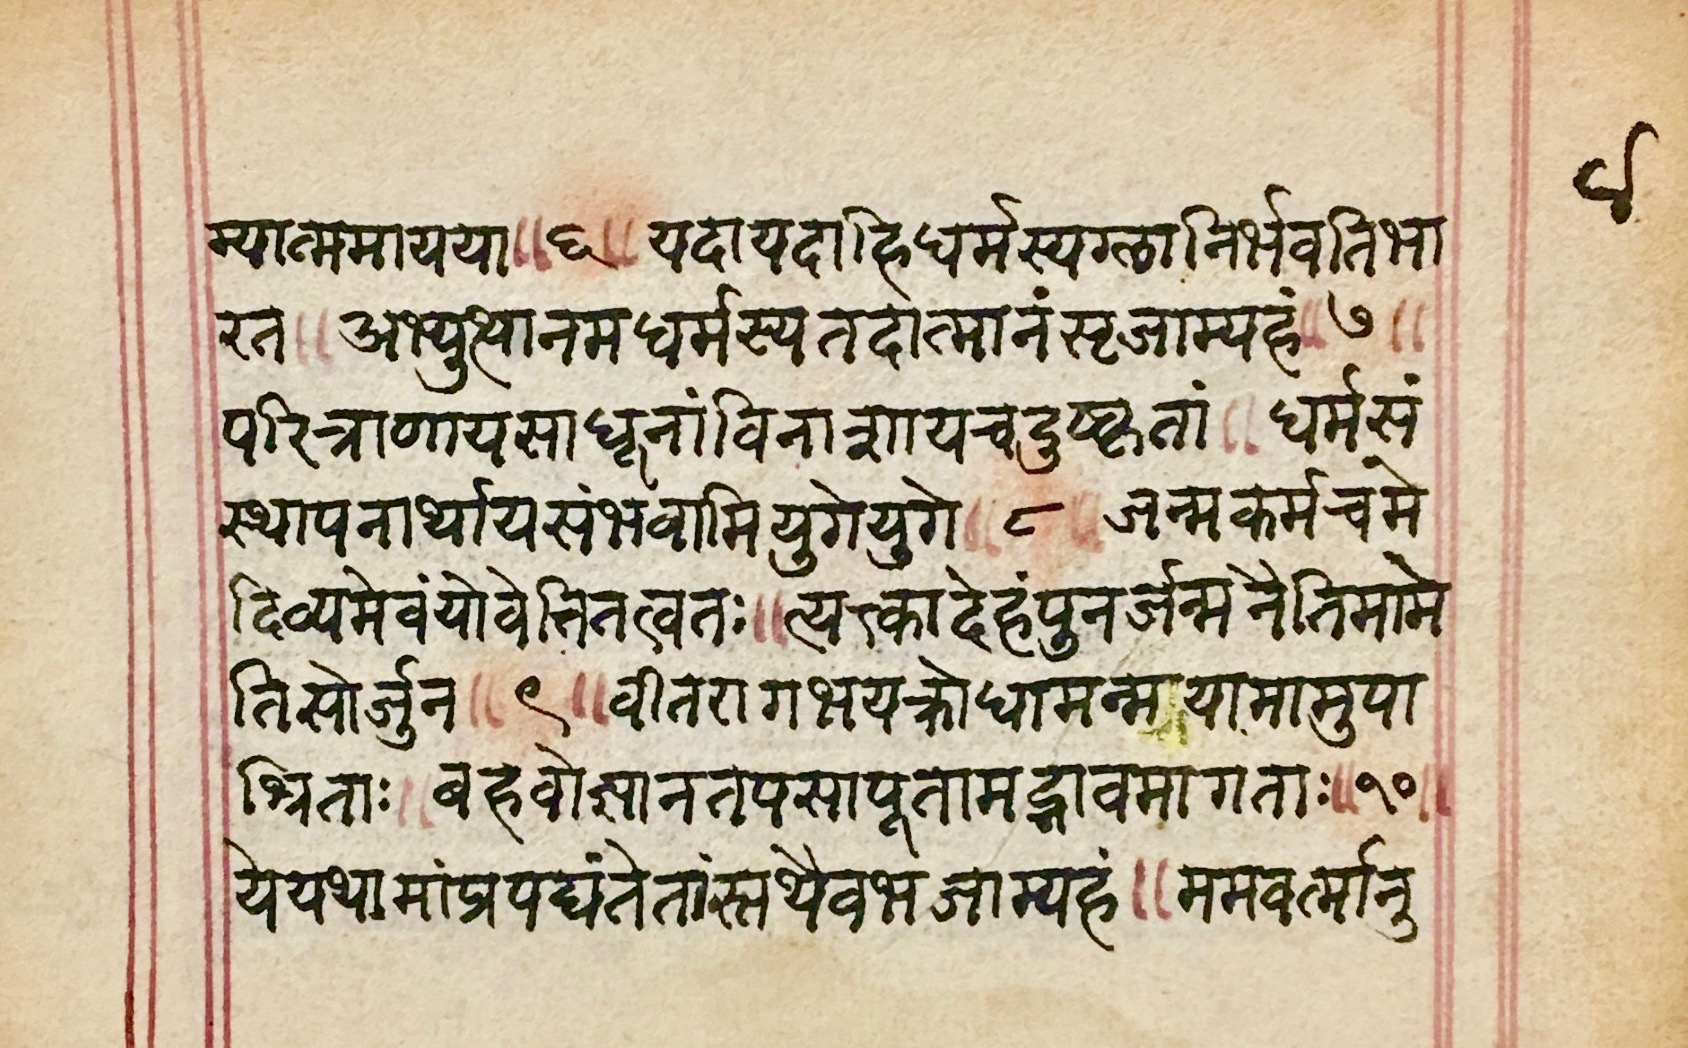 म्यात्ममायया॥६॥ यदायदाहिधर्मस्यग्लानिर्भवतिभा
रत॥ अभ्युत्थानमधर्मस्यतदात्मानंसृजाम्यहं॥७॥
परित्राणायसाधूनांविनाशायचदुष्कृतां॥ धर्मसं
स्थापनार्थायसंभवामियुगेयुगे॥८॥ जन्मकर्मचमे
दिव्यमेवंयोवेत्तितत्वतः॥ त्यक्तादेहंपुनर्जन्मनैतिमामे
तिसोर्जुन॥९॥ वीतरागभयक्रोधामन्मयामामुपा
श्रिताः॥ बहवोज्ञानतपसापूतामद्भावमागताः॥१०॥
येयथामांप्रपद्यंतेतांस्तथैवभजाम्यहं॥ ममवर्त्मानु